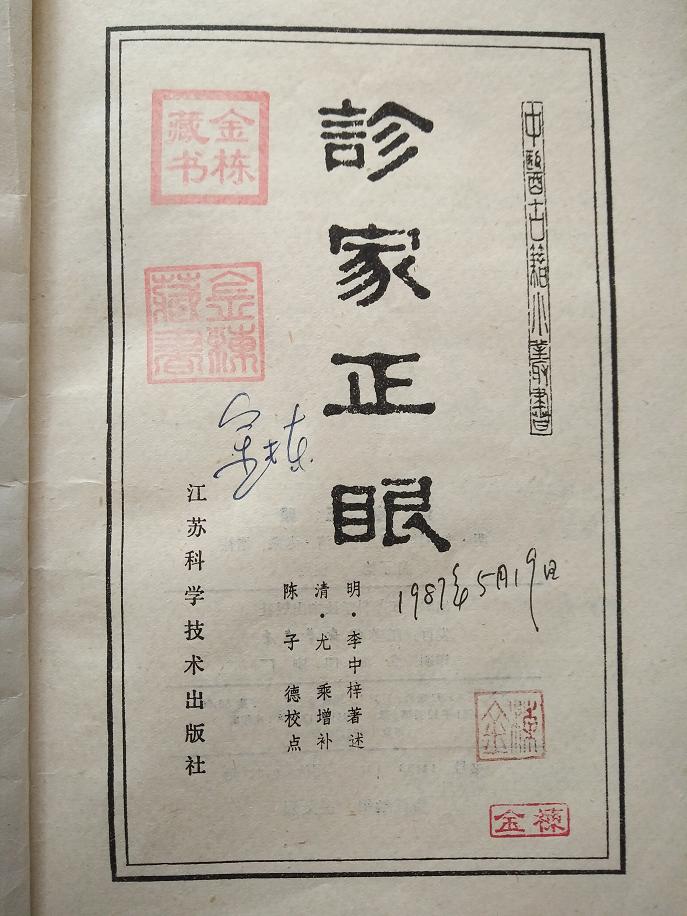 中醫古籍小叢書
診家正眼
明·李中梓著述
清·尤乘增补
陈子德校点
江苏科学技术出版社
金栋藏书
金棟藏書
金栋
1987年5月19日
金棟
金棟